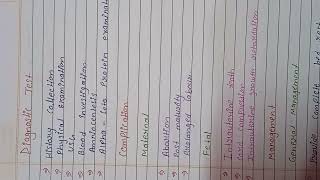 Diagnostic Test
⇒ History Collection
⇒ Physical Examination
⇒ USG
⇒ Blood Investigation
⇒ Amniocentesis
⇒ Alpha - Feto Protein examinat
Complication
Maternal
⇒ Abortion
⇒ Post maturity
⇒ Prolonged labour
Fetal
⇒ Intrauterine death
⇒ Cord compression
⇒ Intrauterine growth
Management
General Management
⇒ Provide complete bed rest